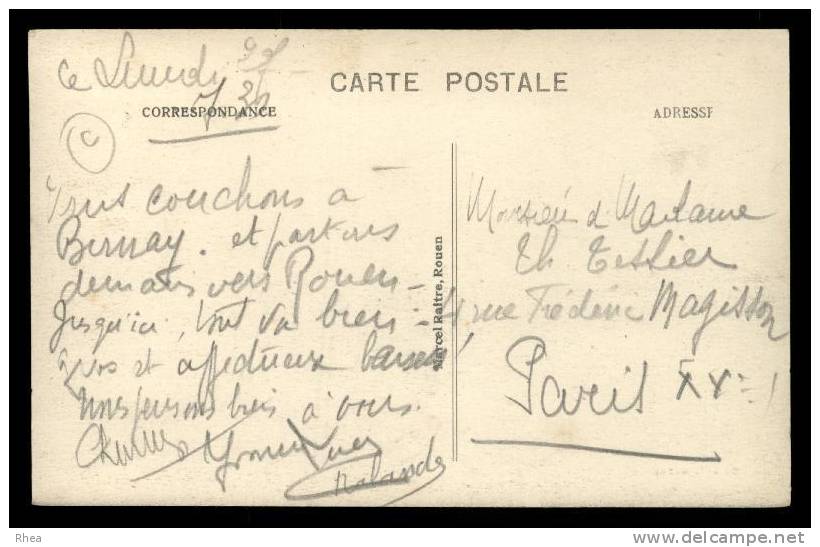 ce Lundi
CARTE POSTALE
CORRESPONDANCE
ADRESSE
C
couchons à
Bernay. et partons
demain vers Rouen -
Jusqu'ici, tout va bien -
Gros et affectueux baisers
Nous pensons bien à vous.
Yvonne
Marcel Raitre, Rouen
Monsieur & Madame
Th Tessier
rue Frédéric Magisson
Paris XVe
Rhea
www.delcampe.net